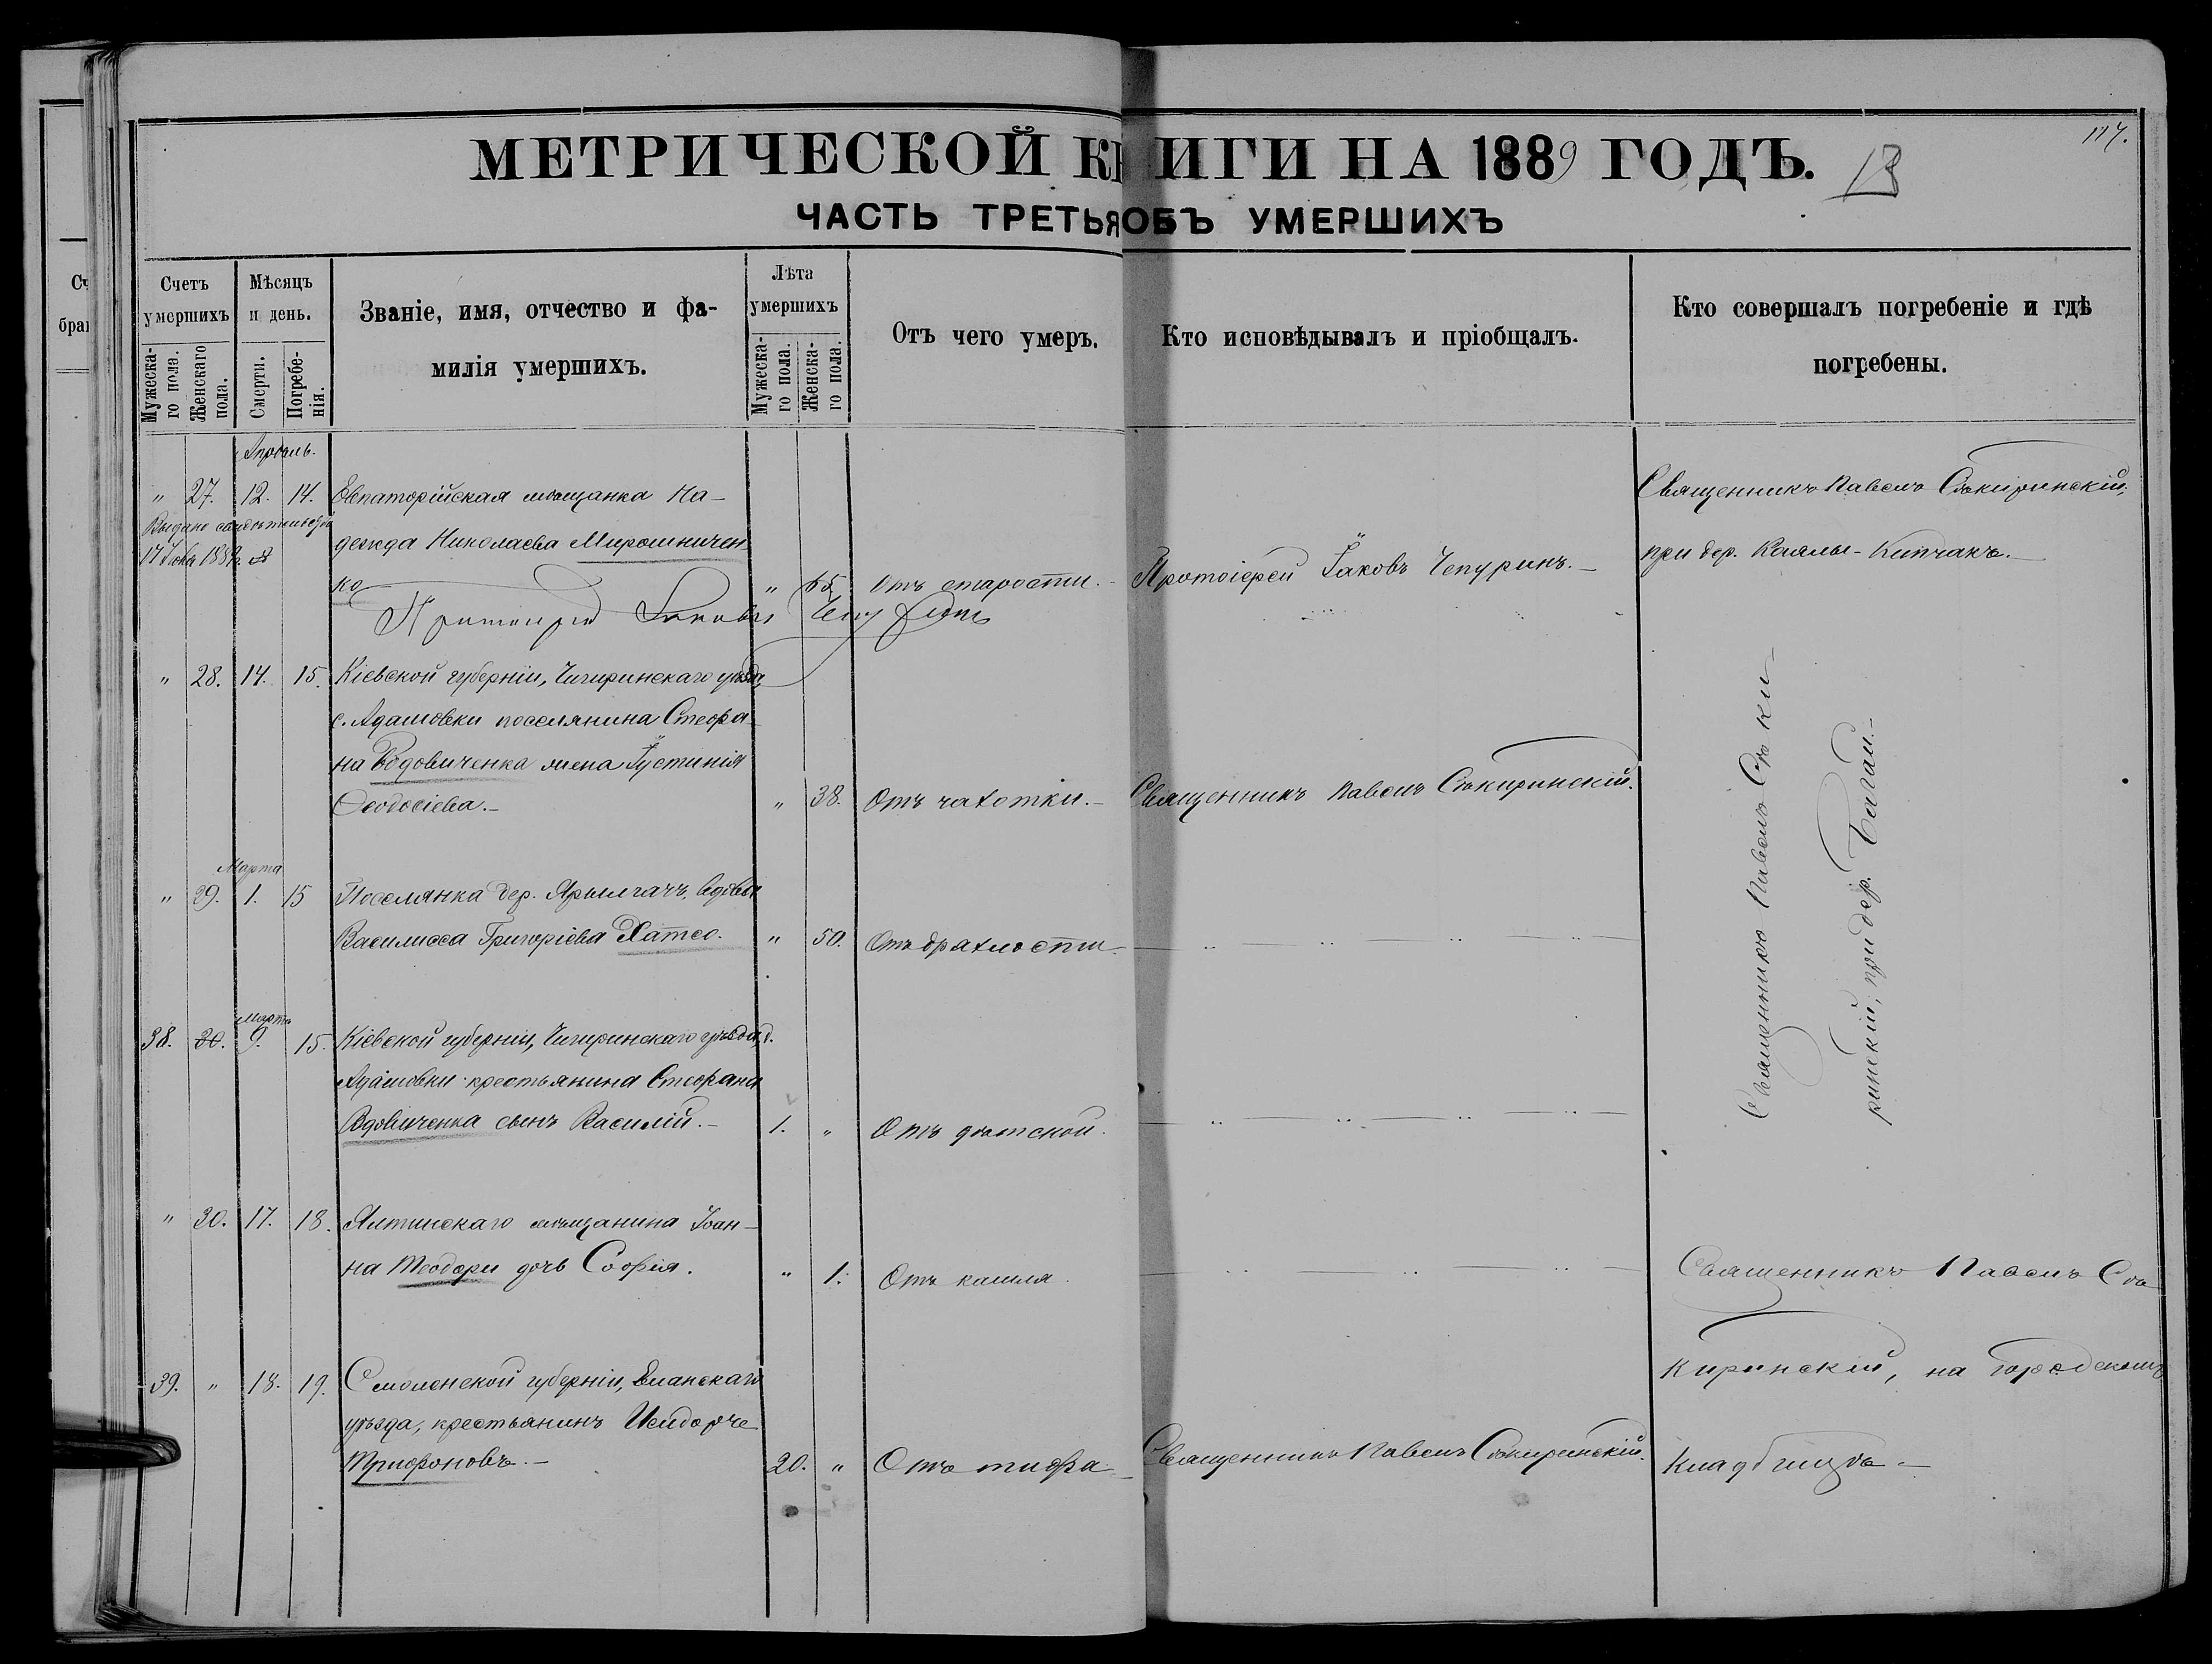 МЕТРИЧЕСКОЙ КНИГИ НА 1889 ГОДЪ.
13
117.
ЧАСТЬ ТРЕТЬЯ ОБЪ УМЕРШИХЪ
Счетъ умершихъ
Мужеска-го пола.
Женскаго пола.
Мѣсяцъ и день.
Смерти.
Погребе-нія.
Званіе, имя, отчество и фа-
милія умершихъ.
Лѣта умершихъ
Мужеска-го пола.
Женска-го пола.
Отъ чего умеръ.
Кто исповѣдывалъ и пріобщалъ.
Кто совершалъ погребеніе и гдѣ
погребены.
Апрѣль.
" 27. 12. 14. Евпаторійская мѣщанка На-
дежда Николаева Мирошничен-
ко " 65. Отъ старости. Протоіерей Іаковъ Чепуринъ.
Священникъ Павелъ Сѣкиринскій,
при дер. Коялы-Кипчакъ.
Выдано свидѣтельство
17 Іюня
Протоіерей Іаковъ Чепуринъ
" 28. 14. 15. Кіевской губерніи, Чигиринскаго уѣзда,
с. Адамовки поселянина Стефа-
на Вдовиченка жена Іустинія
Ѳеодосіева. " 38. Отъ чахотки. Священникъ Павелъ Сѣкиринскій.
Священникъ Павелъ Сѣки-
ринскій, при дер. Багай.
Марта
" 29. 1. 15 Поселянка дер. Ярылгачъ, вдова
Василисса Григоріева Хатсо. " 50. Отъ дряхлости
Марта
38. 30. 9. 15. Кіевской губерніи, Чигиринскаго уѣзда, д.
Адамовки крестьянина Стефана
Вдовиченка сынъ Василій. 1. " Отъ дѣтской.
" 30. 17. 18. Ялтинскаго мѣщанина Іоан-
на Теодори дочь Софія. " 1. Отъ кашля.
Священникъ Павелъ Сѣ
киринскій, на городскомъ
кладбищѣ.
39. " 18. 19. Смоленской губерніи, Ельнскаго
уѣзда, крестьянинъ Исидоръ
Трифоновъ. 20. " Отъ тифа Священникъ Павелъ Сѣкиринскій.
Сч
бра